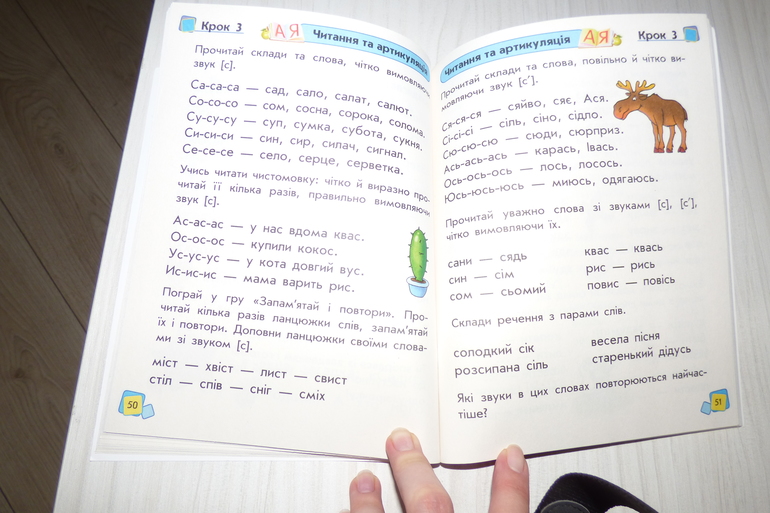 Крок 3
АЯ Читання та артикуляція
Прочитай склади та слова, чітко вимовляючи
звук [с].
Са-са-са — сад, сало, салат, салют.
Со-со-со — сом, сосна, сорока, солома.
Су-су-су — суп, сумка, субота, сукня.
Си-си-си — син, сир, силач, сигнал.
Се-се-се — село, серце, серветка.
Учись читати чистомовку: чітко й виразно про-
читай її кілька разів, правильно вимовляючи
звук [с].
Ас-ас-ас — у нас вдома квас.
Ос-ос-ос — купили кокос.
Ус-ус-ус — у кота довгий вус.
Ис-ис-ис — мама варить рис.
Пограй у гру «Запам'ятай і повтори». Про-
читай кілька разів ланцюжки слів, запам'ятай
їх і повтори. Доповни ланцюжки своїми слова-
ми зі звуком [с].
міст — хвіст — лист — свист
стіл — спів — сніг — сміх
50
Читання та артикуляція АЯ
Крок 3
Прочитай склади та слова, повільно й чітко ви-
мовляючи звук [с′].
Ся-ся-ся — сяйво, сяє, Ася.
Сі-сі-сі — сіль, сіно, сідло.
Сю-сю-сю — сюди, сюрприз.
Ась-ась-ась — карась, Івась.
Ось-ось-ось — лось, лосось.
Юсь-юсь-юсь — миюсь, одягаюсь.
Прочитай уважно слова зі звуками [с], [с′],
чітко вимовляючи їх.
сани — сядь
син — сім
сом — сьомий
квас — квась
рис — рись
повис — повісь
Склади речення з парами слів.
солодкий сік
розсипана сіль
весела пісня
старенький дідусь
Які звуки в цих словах повторюються найчас-
тіше?
51